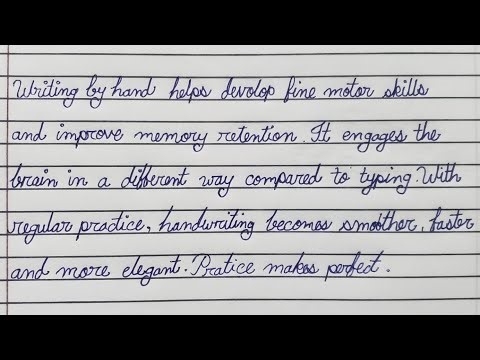 Writing by hand helps devolop fine motor skills
and improve memory retention. It engages the
brain in a different way compared to typing. With
regular practice, handwriting becomes smoother, faster
and more elegant. Pratice makes perfect.